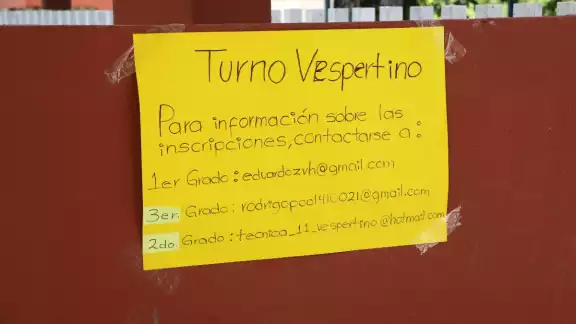 Turno Vespertino
Para información sobre las
inscripciones, contactarse a:
1er Grado: eduardozvh@gmail.com
3er. Grado: rodrigopool410021@gmail.com
2do. Grado: tecnica_11_vespertino@hotmail.com